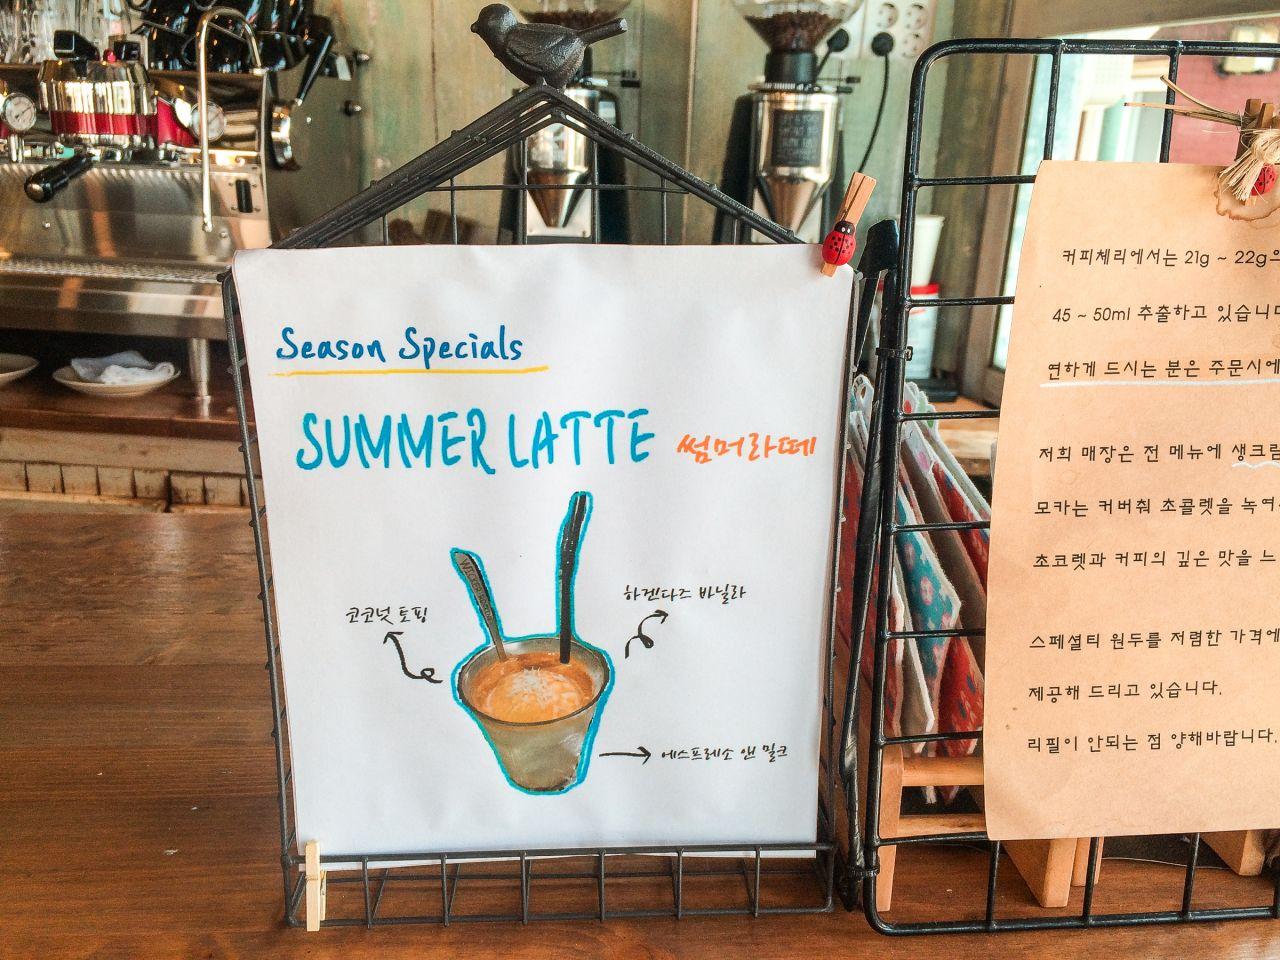 Season Specials
SUMMER LATTE 썸머라떼
하겐다즈 바닐라
코코넛 토핑
에스프레소 앤 밀크
커피체리에서는 21g ~ 22g으
45 ~ 50ml 추출하고 있습니다
연하게 드시는 분은 주문시에
저희 매장은 전 메뉴에 생크림
모카는 커버춰 초콜렛을 녹여
초코렛과 커피의 깊은 맛을 느
스페셜티 원두를 저렴한 가격에
제공해 드리고 있습니다.
리필이 안되는 점 양해바랍니다.